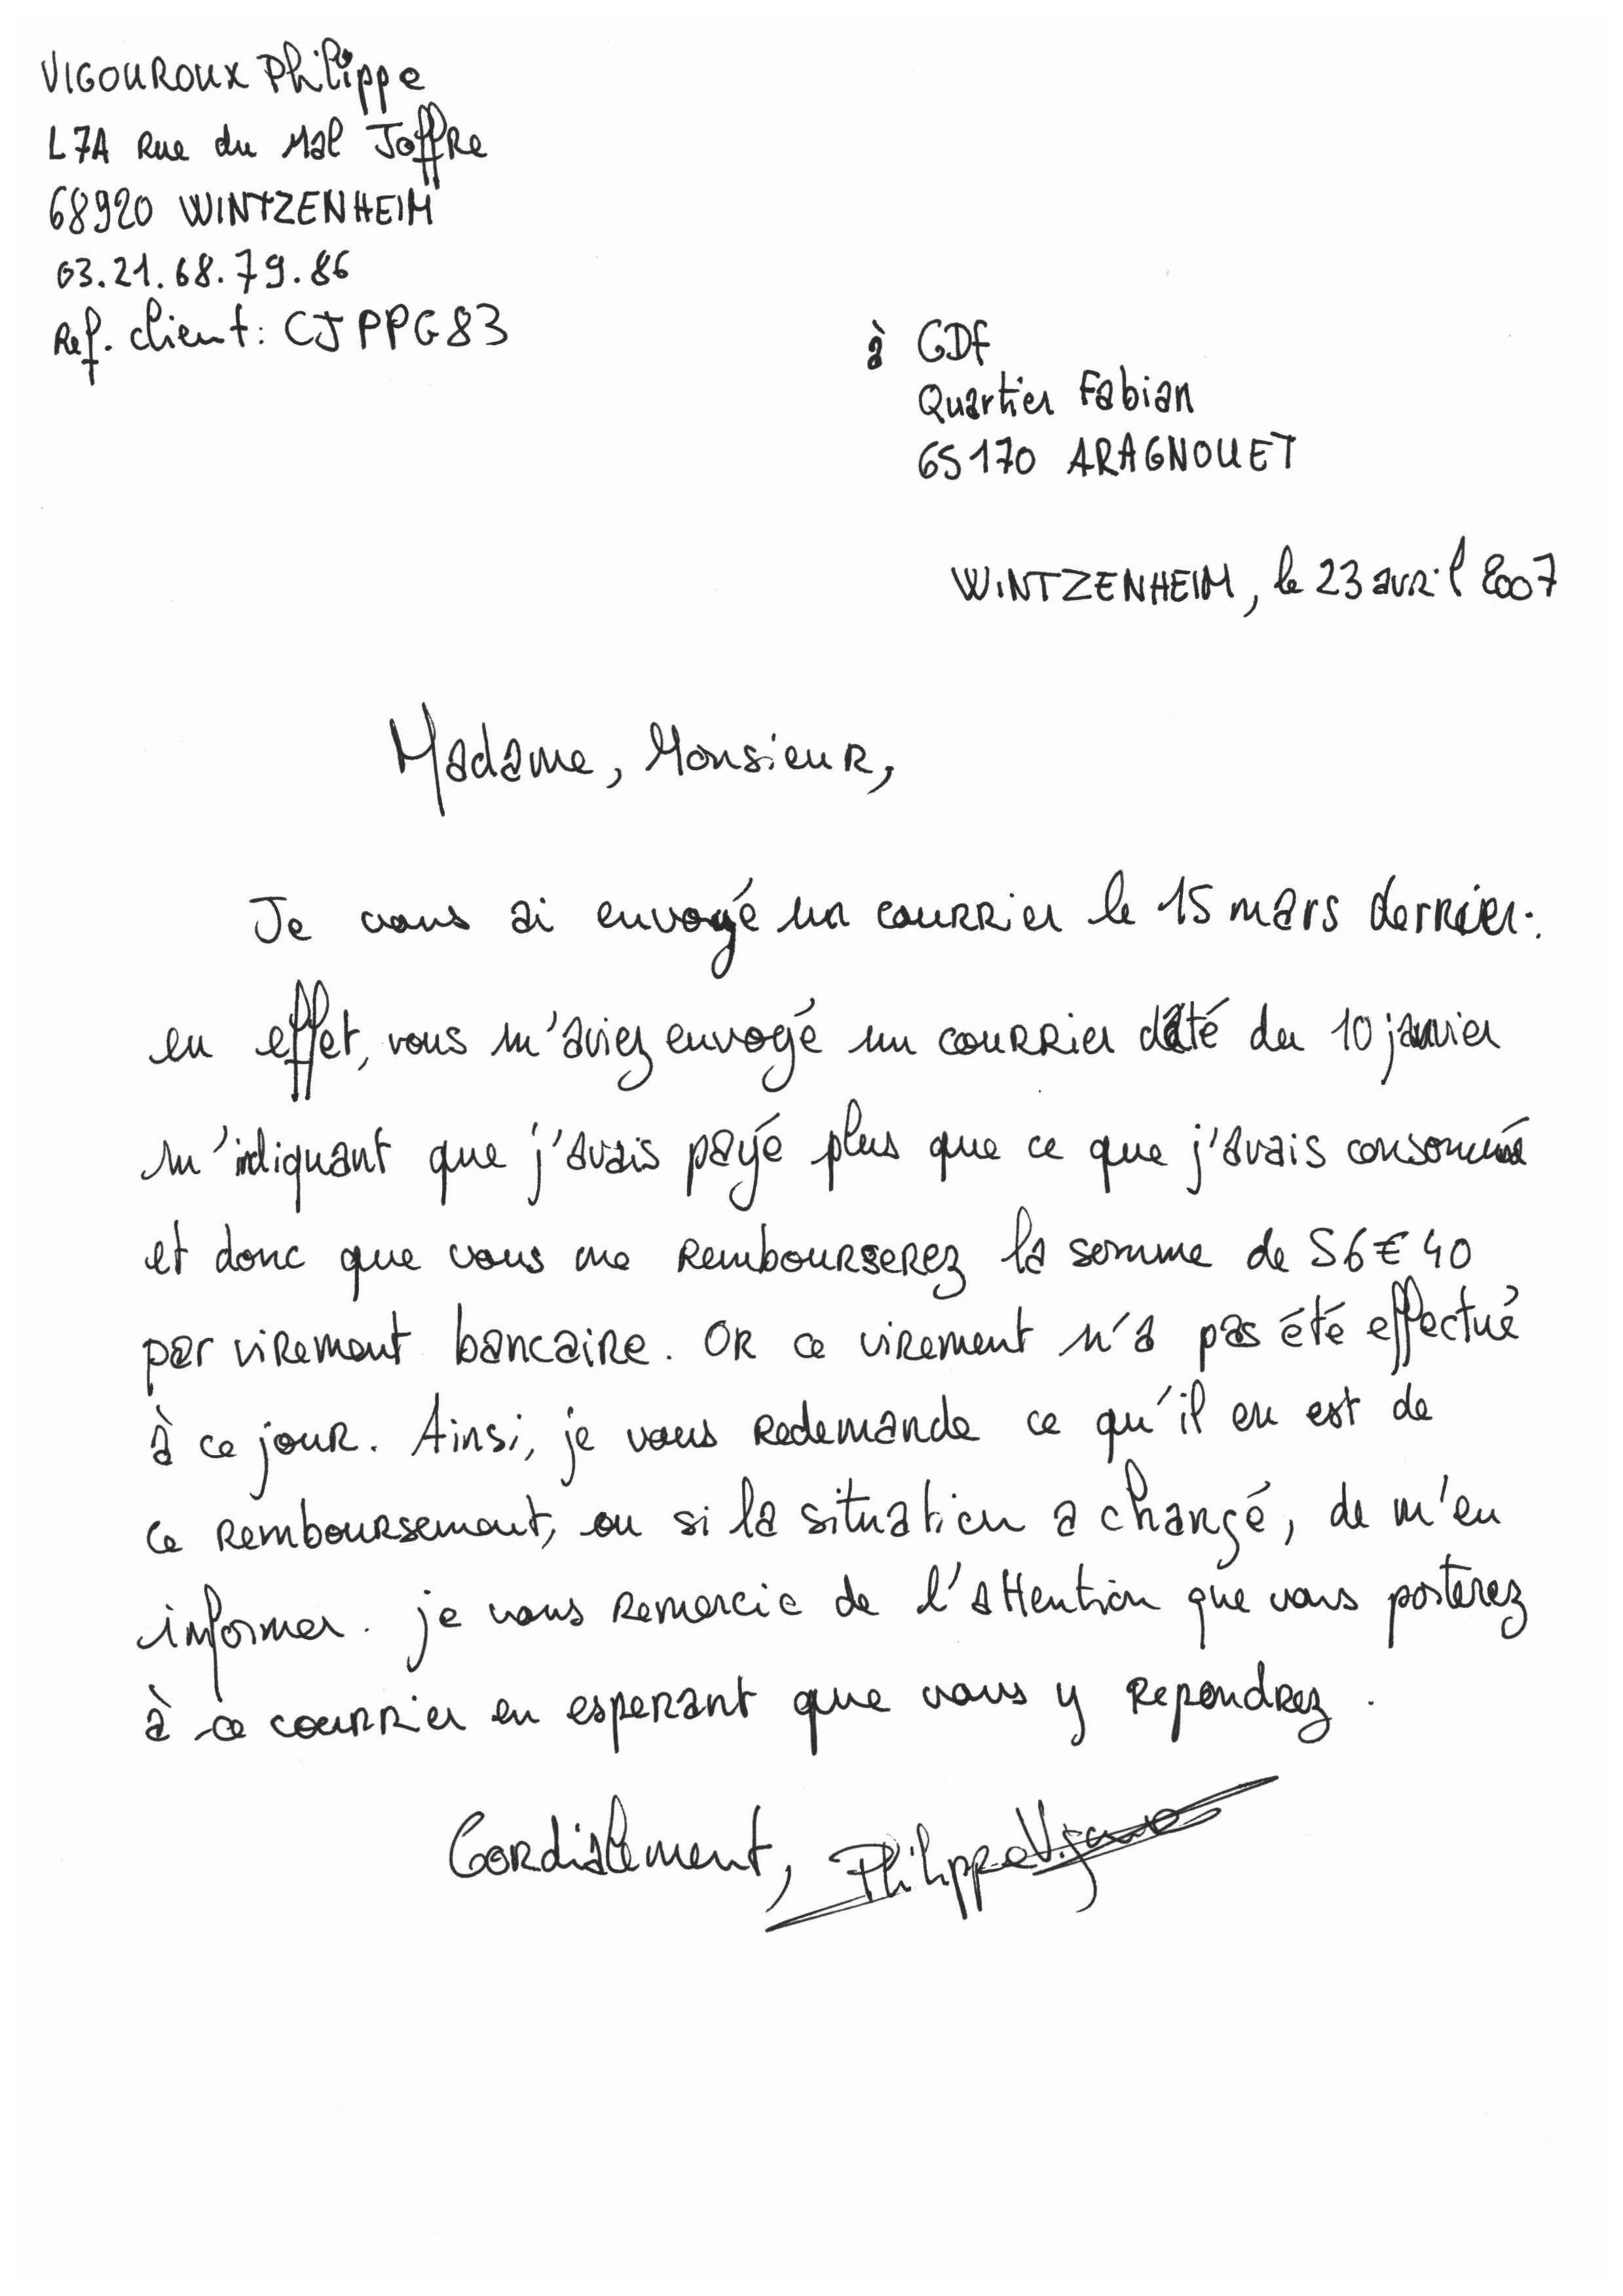 VIGOUROUX Philippe
L7A Rue du Mal Joffre
68920 WINTZENHEIM
03.21.68.79.86
Ref. client : CJPPG83
à GDF
Quartier Fabian
65170 ARAGNOUET
WINTZENHEIM, le 23 avril 2007
Madame, Monsieur,
Je vous ai envoyé un courrier le 15 mars dernier :
en effet, vous m'aviez envoyé un courrier daté du 10 janvier
m'indiquant que j'avais payé plus que ce que j'avais consommé
et donc que vous me rembourserez la somme de 56€40
par virement bancaire. Or ce virement n'a pas été effectué
à ce jour. Ainsi, je vous redemande ce qu'il en est de
ce remboursement, ou si la situation a changé, de m'en
informer. je vous remercie de l'attention que vous porterez
à ce courrier en esperant que vous y repondrez.
Cordialement, Philippe